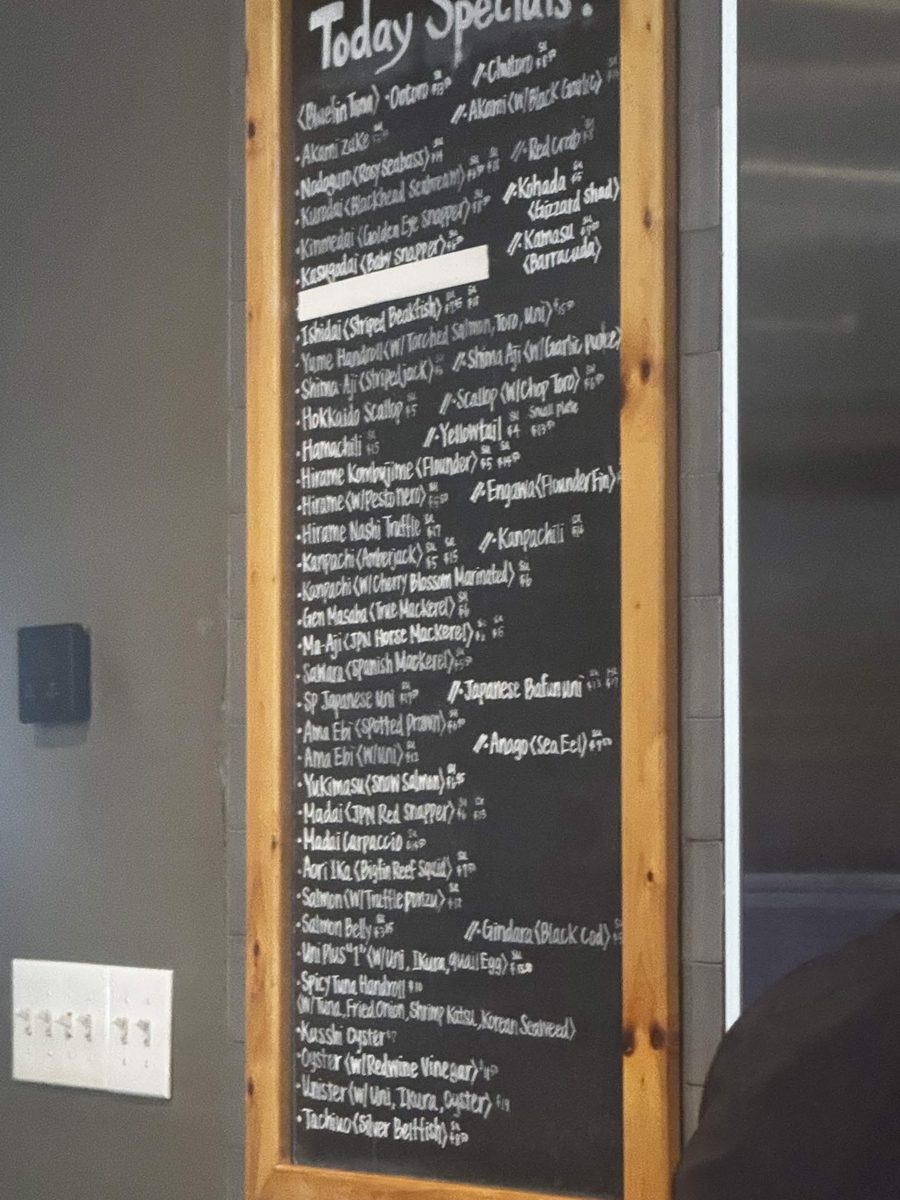 Today Specials!
<Bluefin Tuna> · Ootoro //· Chutoro
· Akami zuke //· Akami (w/Black Garlic)
· Nodoguro <Rosy seabass> //· Red crab
· Kurodai <Blackhead Seabream> //· Kohada
· Kinmedai <Golden Eye snapper> <Gizzard shad>
· Kasugodai <Baby snapper> //· Kamasu
<Barracuda>
· Ishidai <Striped Beakfish>
· Yume Handroll <w/Torched Salmon, Toro, Uni>
· Shima-Aji <Stripedjack> //· Shima Aji (w/Garlic
· Hokkaido Scallop $5 //· Scallop (w/Chop Toro)
· Hamachili $15 //· Yellowtail $4 Small plate
· Hirame Kombujime <Flounder> $5
· Hirame <w/Pesto nero> //· Engawa <Flounder Fin>
· Hirame Nashi Truffle $17
· Kanpachi <Amberjack> $5 $15 //· Kanpachili
· Kanpachi <w/Cherry Blossom Marinated> $6
· Gen Masaba <True Mackerel>
· Ma-Aji <JPN Horse Mackerel>
· Sawara <Spanish Mackerel>
· SP Japanese Uni //· Japanese Bafun uni
· Ama Ebi <Spotted Prawn>
· Ama Ebi <w/uni> $12 //· Anago <Sea Eel>
· Yukimasu <Snow Salmon>
· Madai <JPN Red Snapper>
· Madai Carpaccio
· Aori Ika <Bigfin Reef Squid>
· Salmon <w/Truffle ponzu>
· Salmon Belly //· Gindara <Black Cod>
· Uni Plus "1" <w/Uni, Ikura, quail Egg>
· Spicy Tuna Handroll $10
<w/Tuna, Fried Onion, Shrimp Katsu, Korean Seaweed>
· Kusshi Oyster
· Oyster <w/Redwine Vinegar>
· Unister <w/ Uni, Ikura, Oyster>
· Tachiuo <Silver Beltfish>